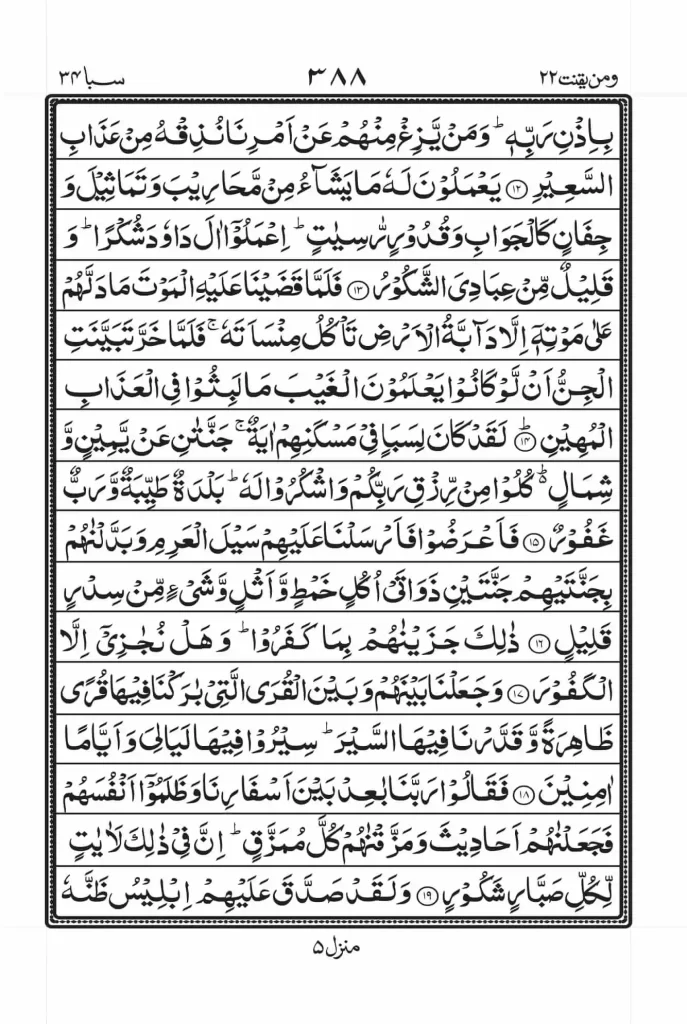 ومن یقنت ۲۲ ۳۸۸ سبا ۳۴
بِاِذۡنِ رَبِّهٖ ؕ وَمَنۡ يَّزِغۡ مِنۡهُمۡ عَنۡ اَمۡرِنَا نُذِقۡهُ مِنۡ عَذَابِ
السَّعِيۡرِ ﴿۱۲﴾ يَعۡمَلُوۡنَ لَهٗ مَا يَشَآءُ مِنۡ مَّحَارِيۡبَ وَتَمَاثِيۡلَ وَ
جِفَانٍ كَالۡجَوَابِ وَقُدُوۡرٍ رّٰسِيٰتٍ ؕ اِعۡمَلُوۡۤا اٰلَ دَاوٗدَ شُكۡرًا ؕ وَ
قَلِيۡلٌ مِّنۡ عِبَادِىَ الشَّكُوۡرُ ﴿۱۳﴾ فَلَمَّا قَضَيۡنَا عَلَيۡهِ الۡمَوۡتَ مَا دَلَّهُمۡ
عَلٰى مَوۡتِهٖۤ اِلَّا دَآبَّةُ الۡاَرۡضِ تَاۡكُلُ مِنۡسَاَتَهٗ ۚ فَلَمَّا خَرَّ تَبَيَّنَتِ
الۡجِنُّ اَنۡ لَّوۡ كَانُوۡا يَعۡلَمُوۡنَ الۡغَيۡبَ مَا لَبِثُوۡا فِى الۡعَذَابِ
الۡمُهِيۡنِ ؕ﴿۱۴﴾ لَقَدۡ كَانَ لِسَبَاٍ فِىۡ مَسۡكَنِهِمۡ اٰيَةٌ ۚ جَنَّتٰنِ عَنۡ يَّمِيۡنٍ وَّ
شِمَالٍ ؕ۬ كُلُوۡا مِنۡ رِّزۡقِ رَبِّكُمۡ وَاشۡكُرُوۡا لَهٗ ؕ بَلۡدَةٌ طَيِّبَةٌ وَّرَبٌّ
غَفُوۡرٌ ﴿۱۵﴾ فَاَعۡرَضُوۡا فَاَرۡسَلۡنَا عَلَيۡهِمۡ سَيۡلَ الۡعَرِمِ وَبَدَّلۡنٰهُمۡ
بِجَنَّتَيۡهِمۡ جَنَّتَيۡنِ ذَوَاتَىۡ اُكُلٍ خَمۡطٍ وَّاَثۡلٍ وَّشَىۡءٍ مِّنۡ سِدۡرٍ
قَلِيۡلٍ ﴿۱۶﴾ ذٰلِكَ جَزَيۡنٰهُمۡ بِمَا كَفَرُوۡا ؕ وَهَلۡ نُجٰزِىۡۤ اِلَّا
الۡكَفُوۡرَ ﴿۱۷﴾ وَجَعَلۡنَا بَيۡنَهُمۡ وَبَيۡنَ الۡقُرَى الَّتِىۡ بٰرَكۡنَا فِيۡهَا قُرًى
ظَاهِرَةً وَّقَدَّرۡنَا فِيۡهَا السَّيۡرَ ؕ سِيۡرُوۡا فِيۡهَا لَيَالِىَ وَاَيَّامًا
اٰمِنِيۡنَ ﴿۱۸﴾ فَقَالُوۡا رَبَّنَا بٰعِدۡ بَيۡنَ اَسۡفَارِنَا وَظَلَمُوۡۤا اَنۡفُسَهُمۡ
فَجَعَلۡنٰهُمۡ اَحَادِيۡثَ وَمَزَّقۡنٰهُمۡ كُلَّ مُمَزَّقٍ ؕ اِنَّ فِىۡ ذٰلِكَ لَاٰيٰتٍ
لِّكُلِّ صَبَّارٍ شَكُوۡرٍ ﴿۱۹﴾ وَلَقَدۡ صَدَّقَ عَلَيۡهِمۡ اِبۡلِيۡسُ ظَنَّهٗ
منزل ۵